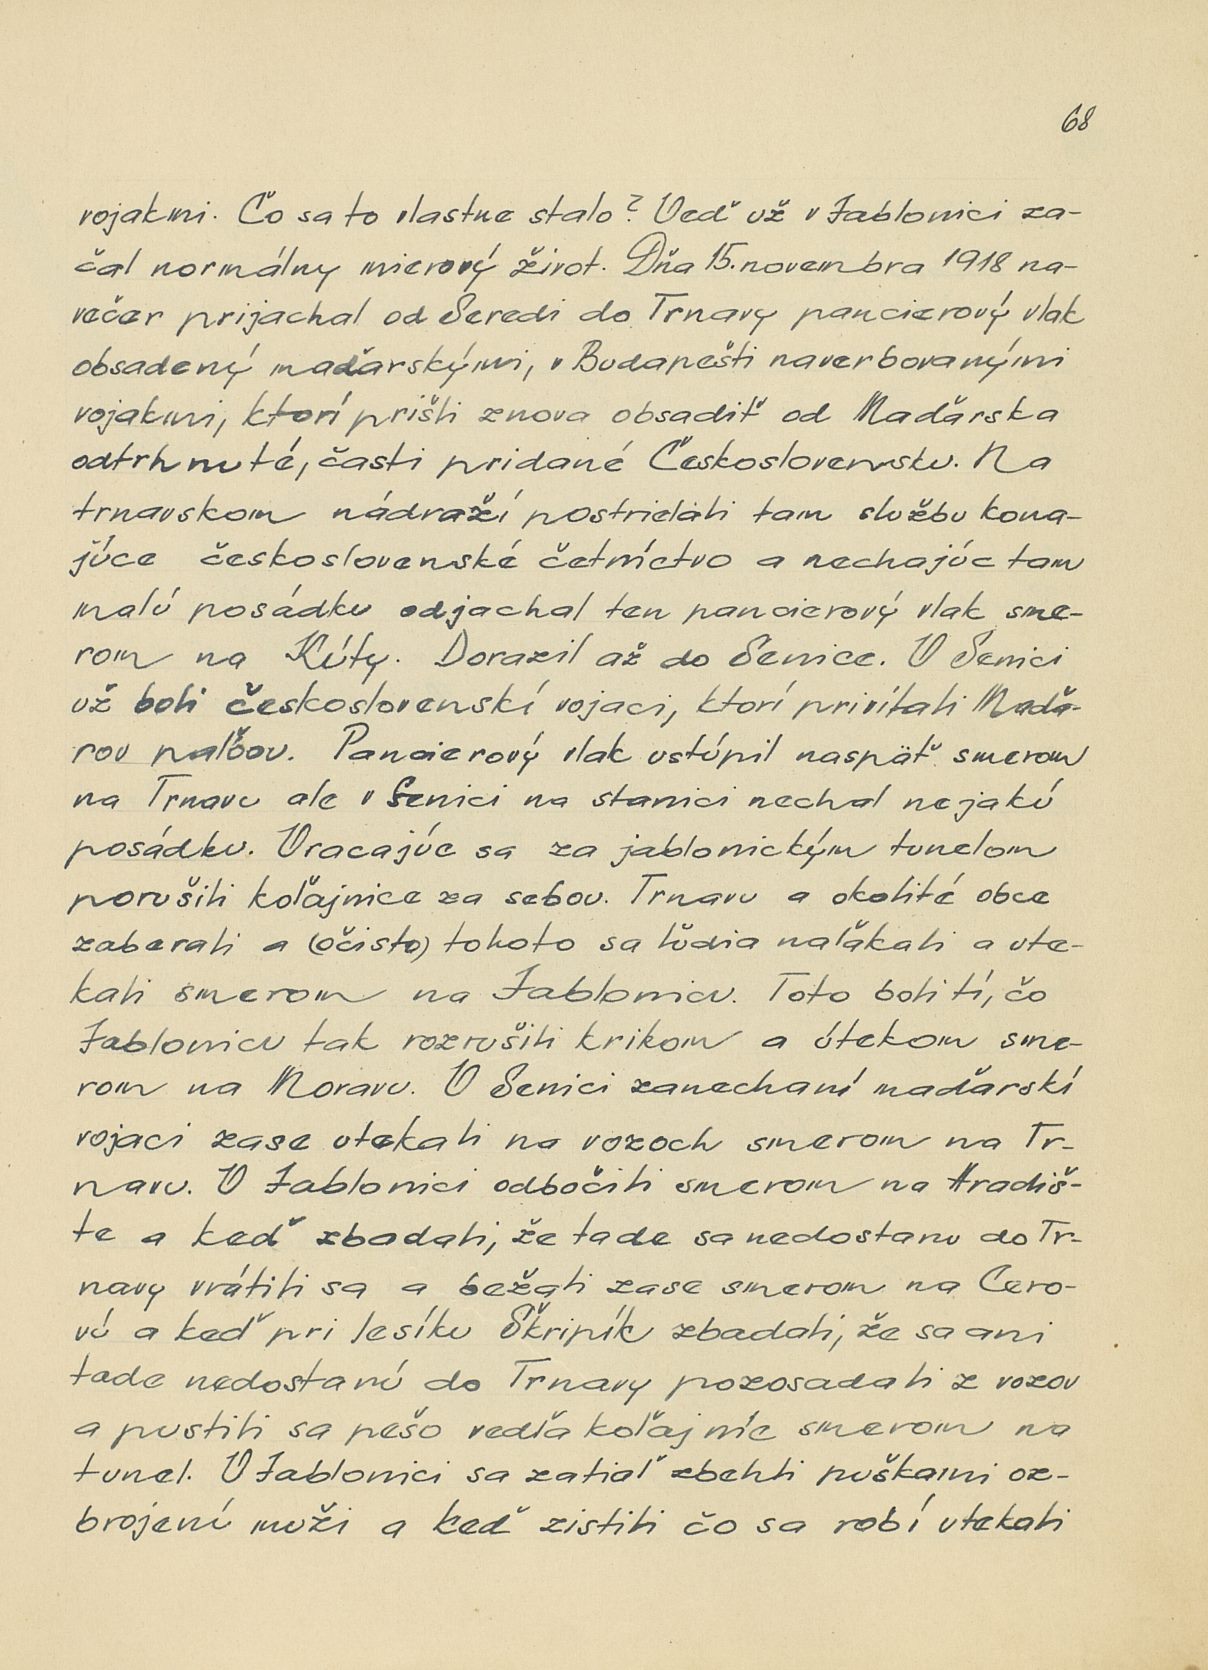 68
vojakmi. Čo sa to vlastne stalo? Veď už v Jablonici za-
čal normálny mierový život. Dňa 15. novembra 1918 na-
večer prijachal od Seredi do Trnavy pancierový vlak
obsadený maďarskými, v Budapešti naverbovanými
vojakmi, ktorí prišli znova obsadiť od Maďarska
odtrhnuté, časti pridané Československu. Na
trnavskom nádraží postrieľali tam službu kona-
júce československé četníctvo a nechajúc tam
malú posádku odjachal ten pancierový vlak sme-
rom na Kúty. Dorazil až do Senice. V Senici
už boli československí vojaci, ktorí privítali Maďa-
rov paľbou. Pancierový vlak ustúpil naspäť smerom
na Trnavu ale v Senici na stanici nechal nejakú
posádku. Vracajúc sa za jablonickým tunelom
porušili koľajnice za sebou. Trnavu a okolité obce
zaberali a (očisto) tohoto sa ľudia naľakali a ute-
kali smerom na Jablonicu. Toto boli tí, čo
Jablonicu tak rozrušili krikom a útekom sme-
rom na Moravu. V Senici zanechaní maďarskí
vojaci zase utekali na vozoch smerom na Tr-
navu. V Jablonici odbočili smerom na Hradiš-
te a keď zbadali, že tade sa nedostanu do Tr-
navy vrátili sa a bežali zase smerom na Cero-
vú a keď pri lesíku Škripík zbadali, že sa ani
tade nedostanú do Trnavy pozosadali z vozov
a pustili sa pešo vedľa koľajníc smerom na
tunel. V Jablonici sa zatiaľ zbehli puškami oz-
brojení muži a keď zistili čo sa robí utekali